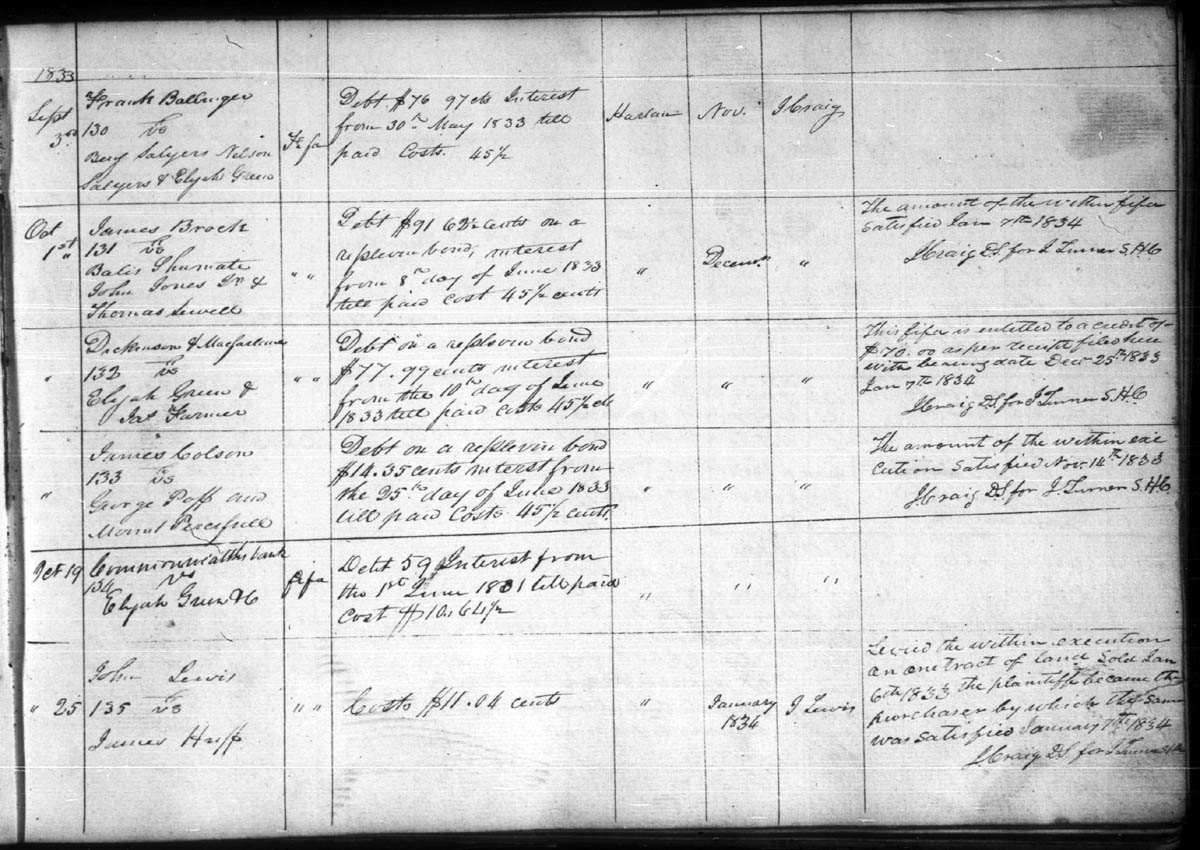 1833
Sept 3rd
Frank Ballinger
130 vs
Berry Salyers Nelson
Salyers & Elijah Green
Fi fa
Debt $76 97 cts Interest
from 30th May 1833 till
paid Costs. 45½
Harlan
Nov.
J Craig
Oct 1st
James Brock
131 vs
Balis Shumate
John Jones Sr &
Thomas Sewell
" "
Debt $91 62½ cents on a
replevin bond, interest
from 8th day of June 1833
till paid cost 45½ cents
"
Decemr
"
The amount of the within fifa
satisfied Jan 7th 1834
J Craig D.S. for J Turner S.H.C
"
Dickenson & Macfarlane
132 vs
Elijah Green &
Jas Farmer
" "
Debt on a replevin bond
$77.99 cents interest
from the 10th day of June
1833 till paid costs 45½ cts
"
"
"
This fifa is entitled to a credit of
$70.00 as per receipt filed here
with bearing date Decr 25th 1833
Jan 7th 1834
J Craig D.S. for J Turner S.H.C
"
James Colson
133 vs
George Poff and
Percifull
Debt on a replevin bond
$14.35 cents interest from
the 25th day of June 1833
till paid Costs 45½ cents
"
"
"
The amount of the within exe
cution satisfied Nov. 14th 1833
J. Craig D.S. for J. Turner S.H.C
Oct 19
Commonwealths bank
134 vs
Elijah Green & C
fifa
Debt 59 Interest from
the 1st June 1831 till paid
cost $10.64½
"
"
"
" 25
John Lewis
135 vs
James Huff
" "
Costs $11.04 cents
"
January
1834
J Lewis
Levied the within execution
on one tract of land Sold Jan
6th 1833 the plaintiff became the
purchaser by which the same
was satisfied January 7th 1834
J Craig D.S for J Turner S.H.C